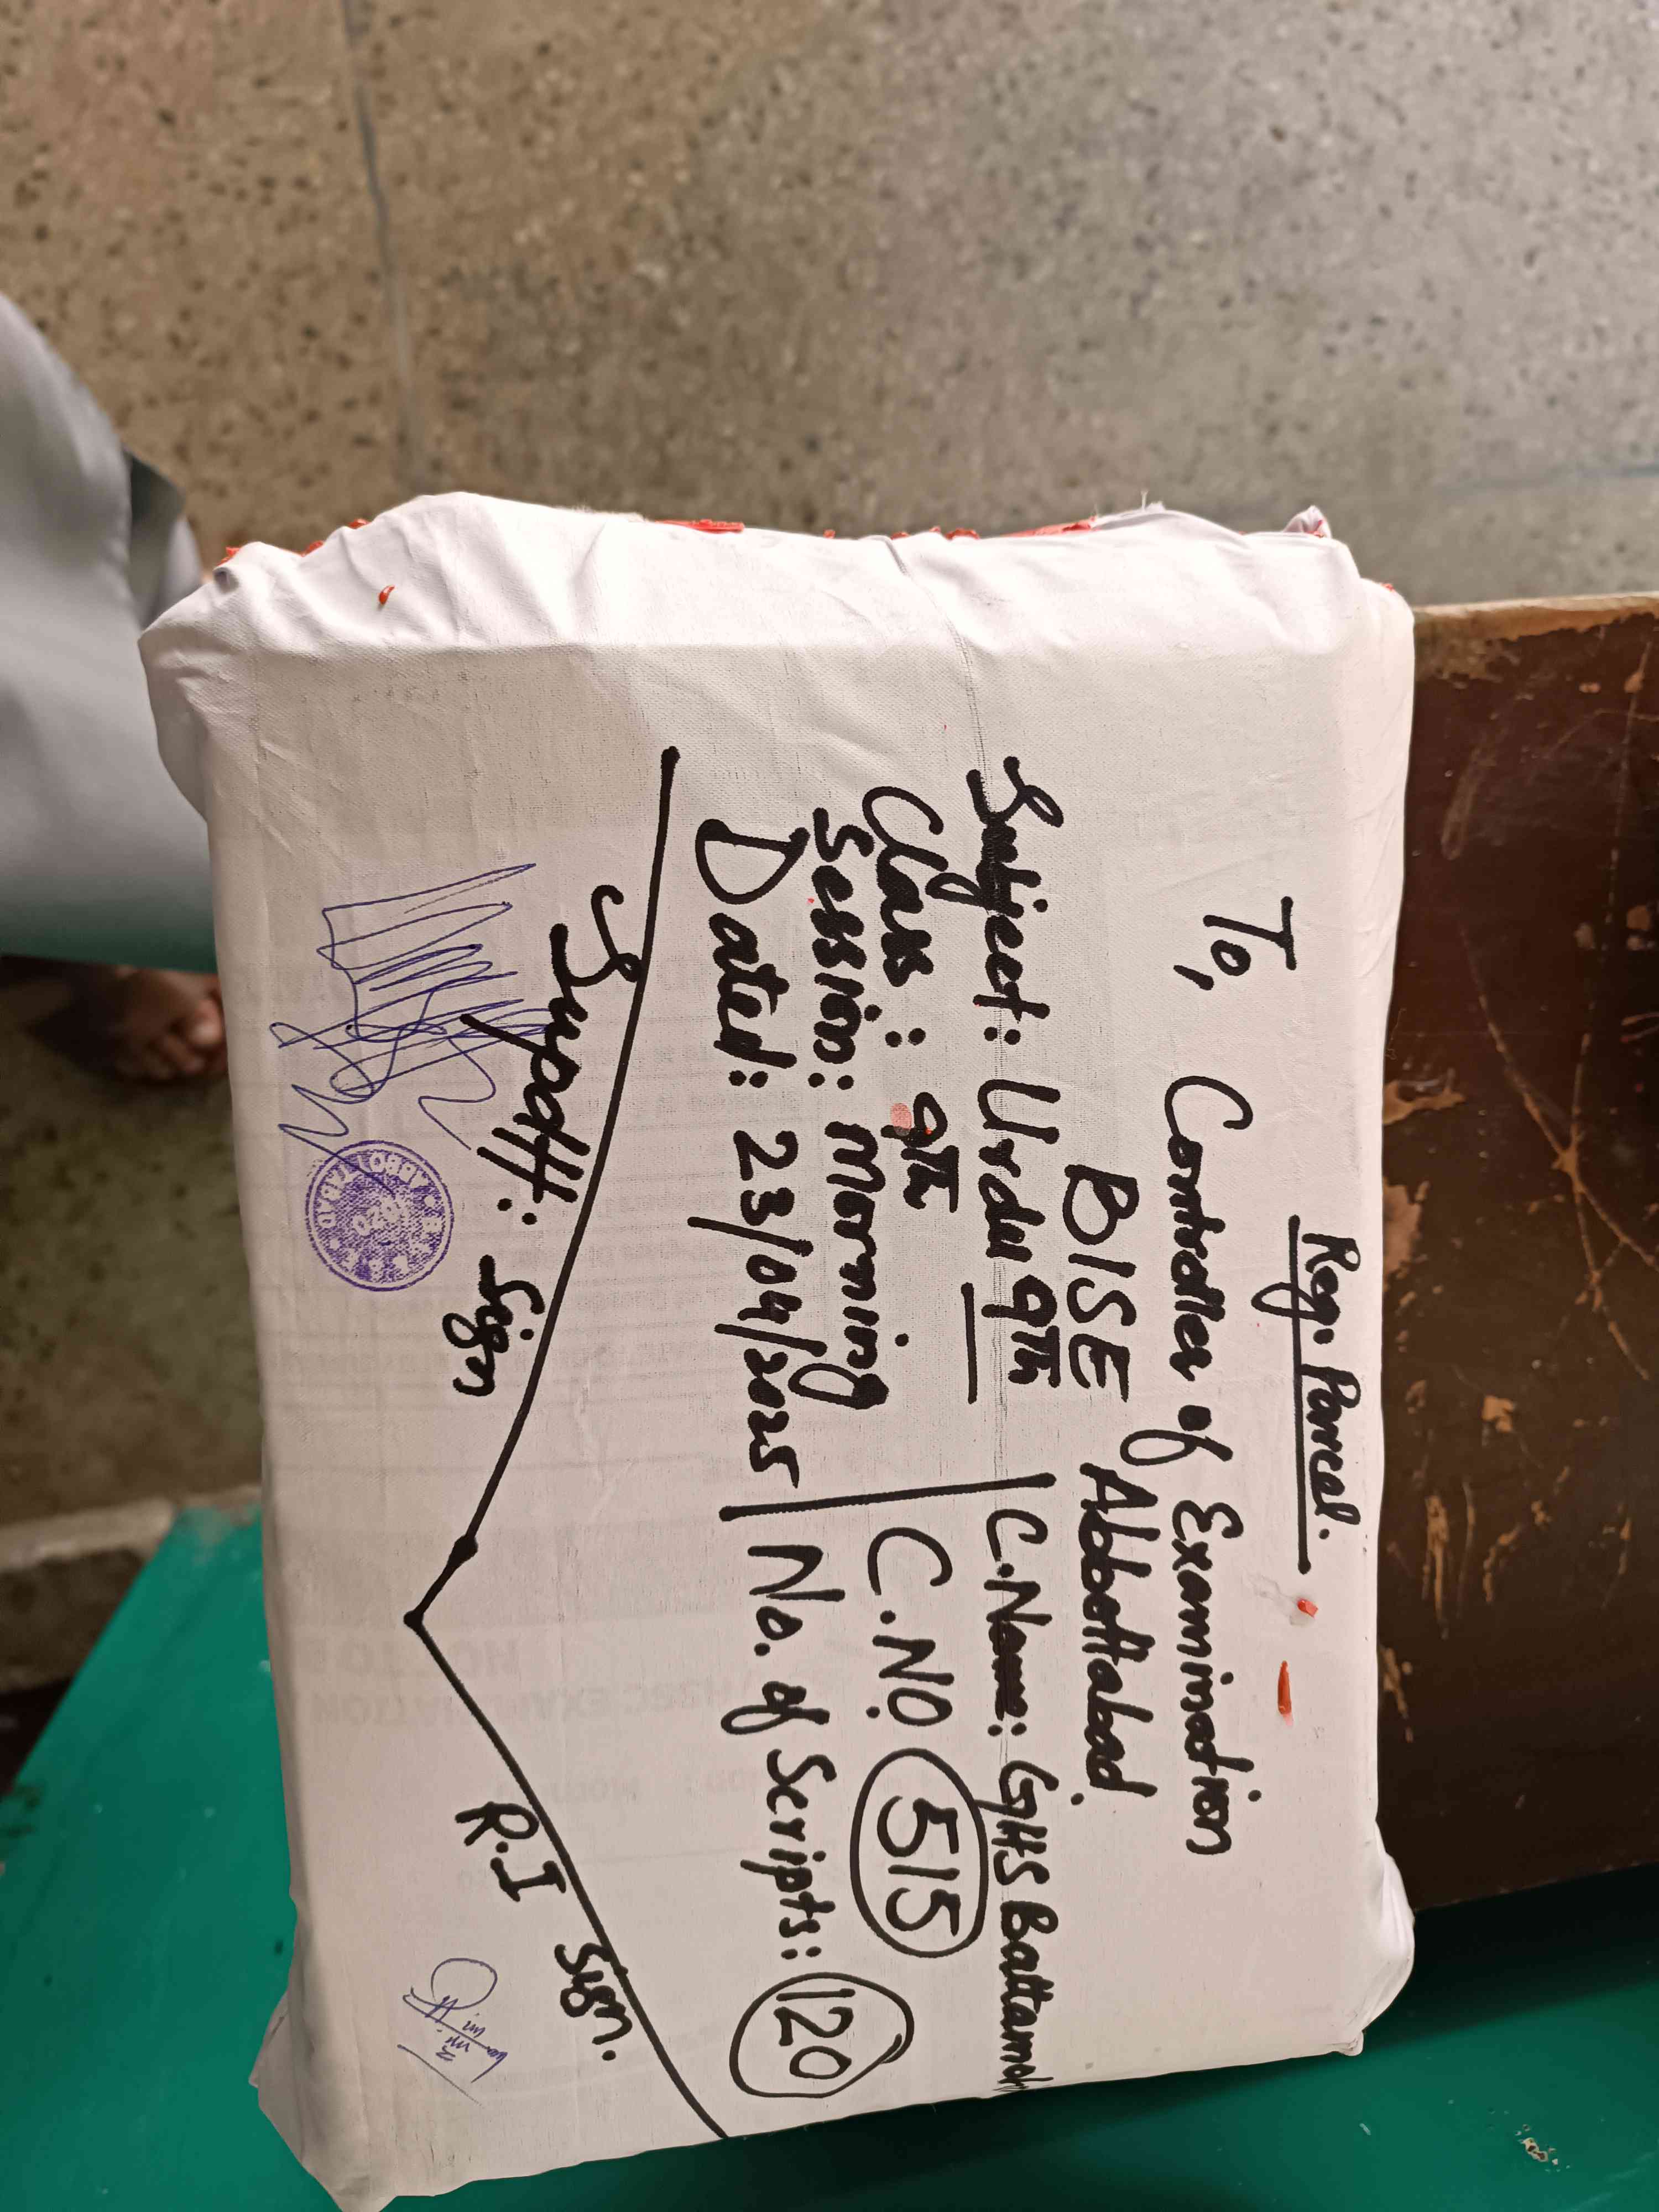 Reg. Parcel.
To,
Controller of Examination
BISE Abbottabad.
Subject: Urdu 9th
Class: 9th
Session: Morning
Dated: 23/04/2025
C.Name: GHS Battamori
C.NO. 515
No. of Scripts: 120
Supdtt: Sign
R.I Sign.
ABBOTTABAD